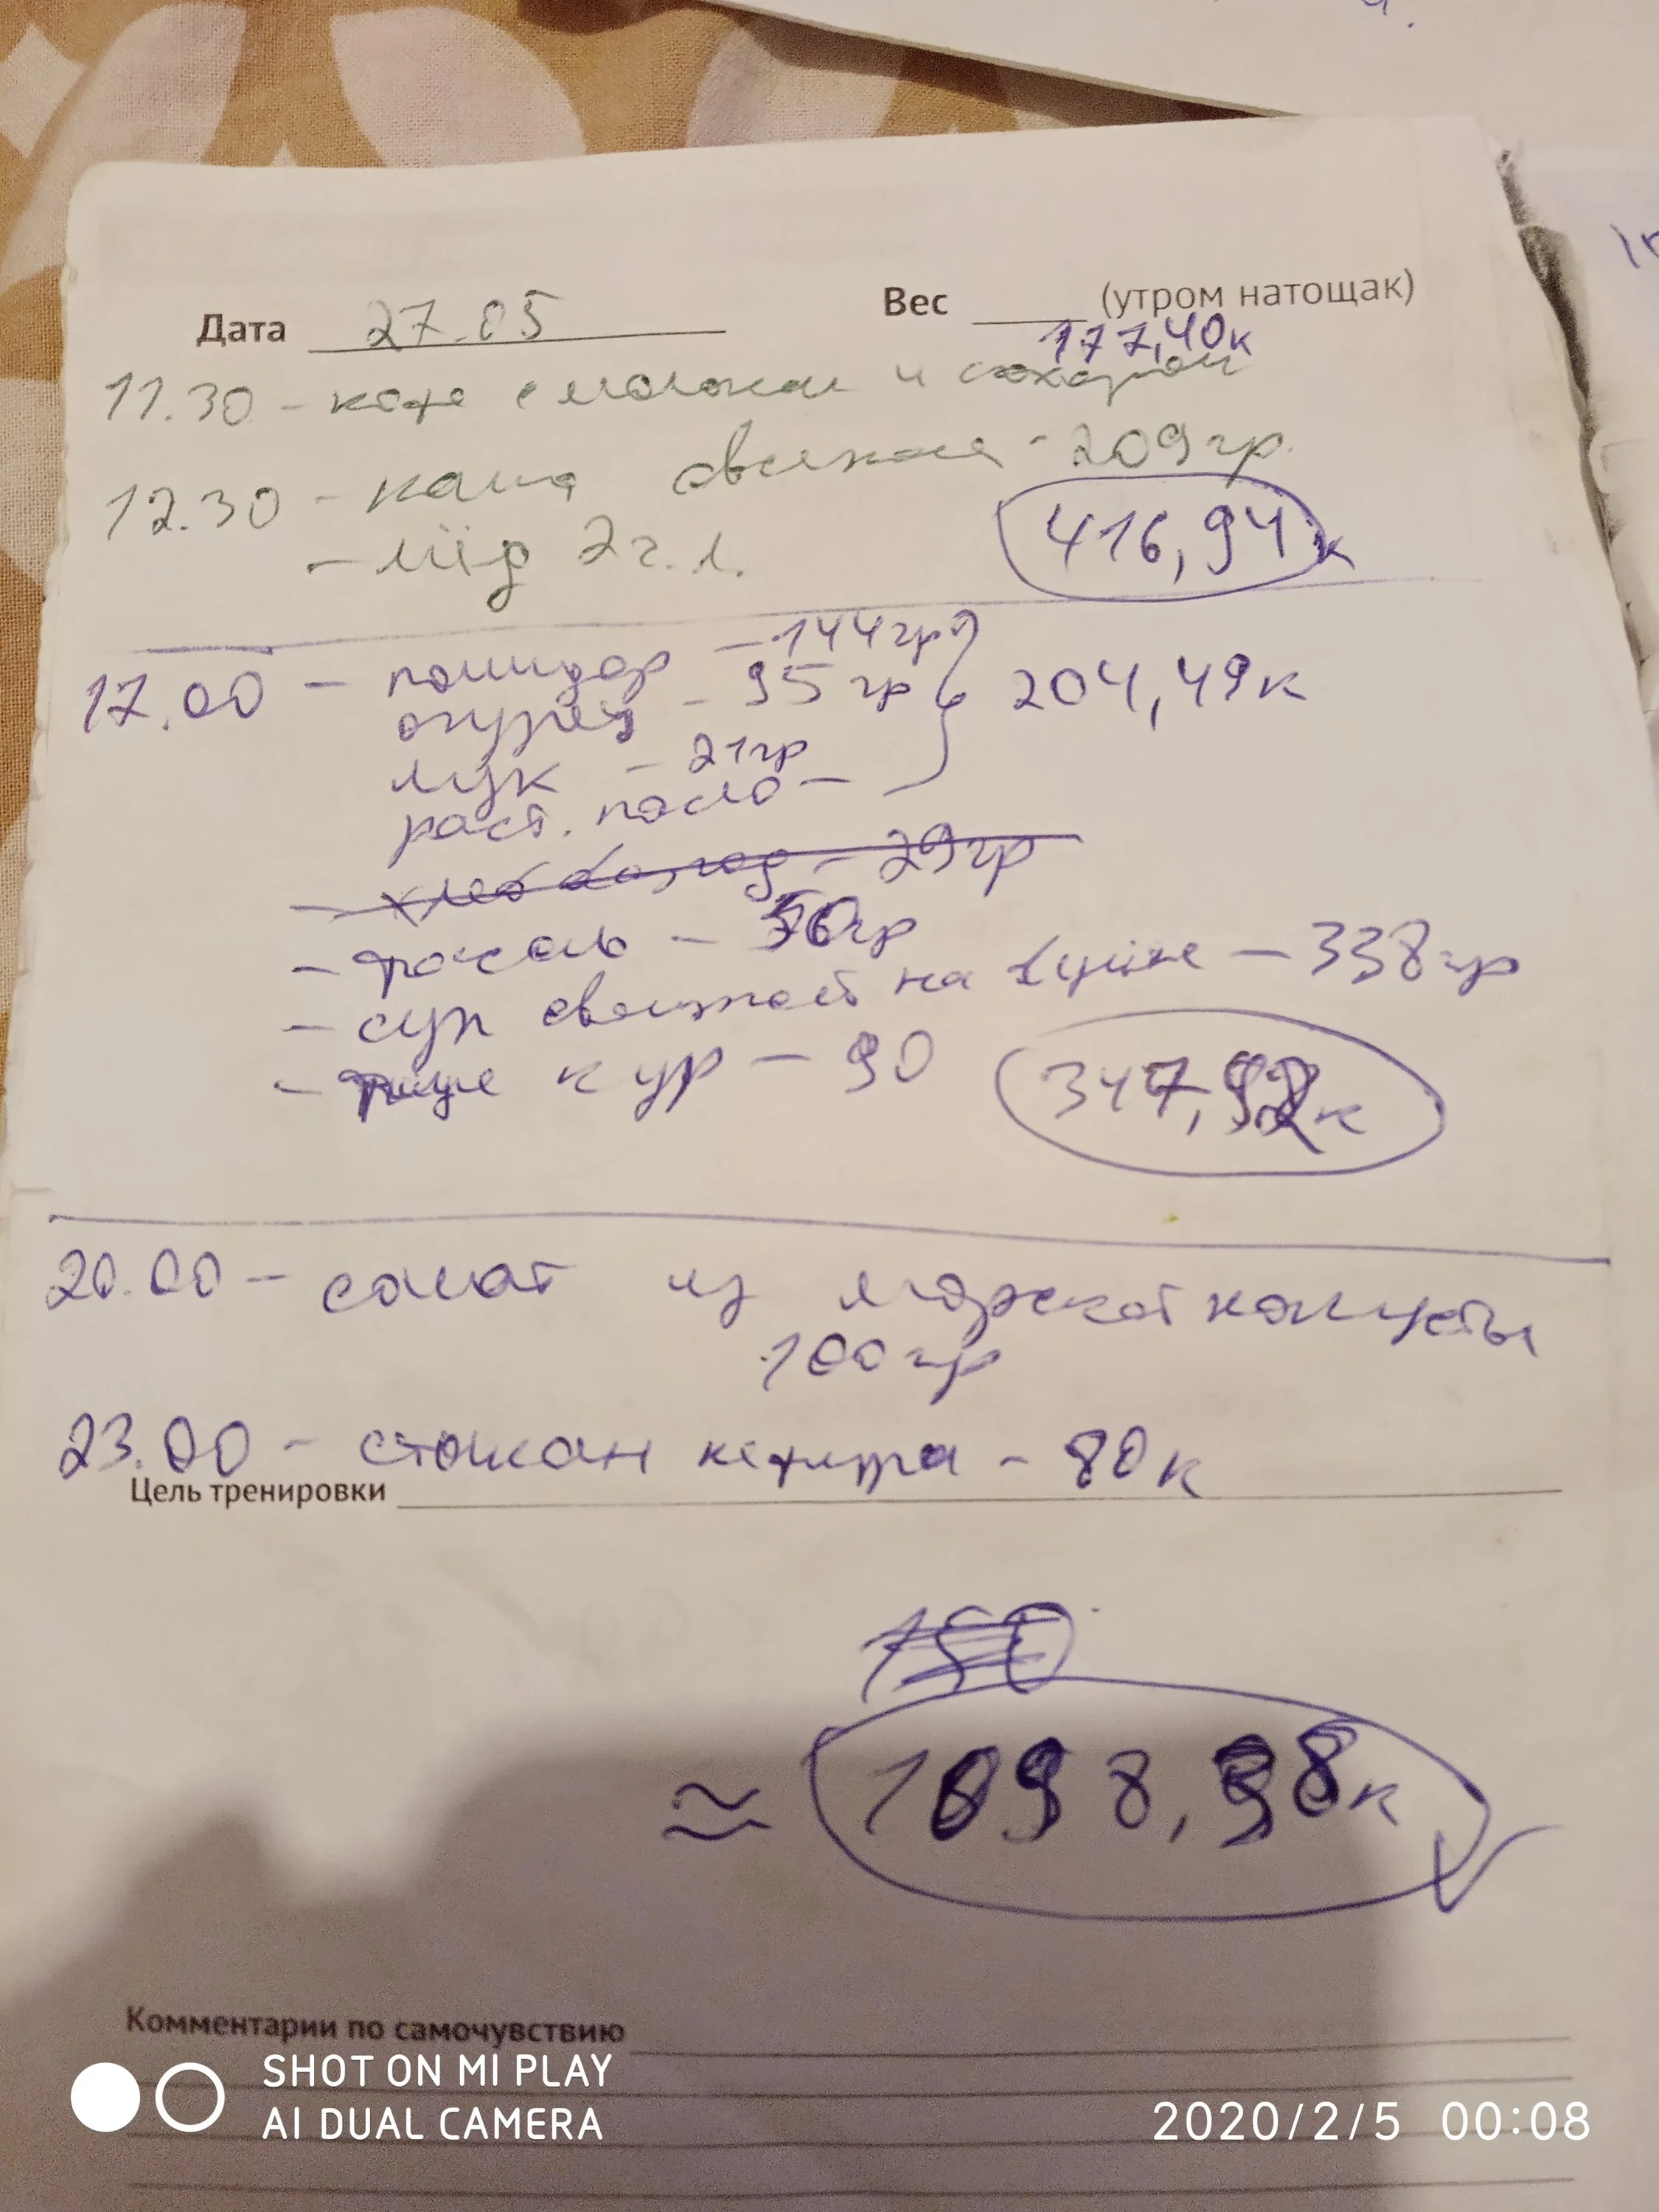 Дата 27.05
Вес (утром натощак)
177,40к
11.30 - кофе с молоком и сахаром
12.30 - каша овсяная - 209гр.
- мёд 2 ч.л.
416,94к
17.00 - помидор - 144гр
огурец - 95гр
204,49к
лук - 21гр
раст. масло -
- хлеб - 29гр
- фасоль - 56гр
- суп на - 338гр
- кур - 90
347,92к
20.00 - салат из морской капусты
100гр
23.00 - стакан кефира - 80к
Цель тренировки
750
≈ 1098,98к
Комментарии по самочувствию
SHOT ON MI PLAY
AI DUAL CAMERA
2020/2/5 00:08